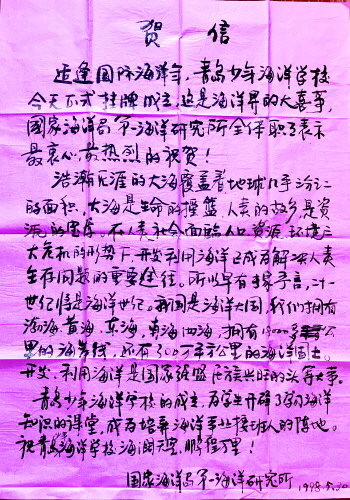 贺信
适逢国际海洋年,青岛少年海洋学校
今天正式挂牌成立,这是海洋界的大喜事,
国家海洋局第一海洋研究所全体职工表示
最衷心、最热烈的祝贺!
浩瀚无涯的大海覆盖着地球几乎
的面积,大海是生命的摇篮,人类的故乡是资
源的宝库。在人类社会面临人口、资源、环境三
大危机的形势下,开发利用海洋已成为解决人类
生存问题的重要途径。所以早有专家予言,二十一
世纪将是海洋世纪。我国是海洋大国,我们拥有
渤海、黄海、东海、南海四海,拥有18000多公
里的海岸线,还有300万平方公里的海洋国土。
开发、利用海洋是国家强盛民族兴旺的头等大事。
青岛少年海洋学校的成立,为学生开辟了学习海洋
知识的课堂,成为培养海洋事业接班人的阵地。
祝青岛少年海洋学校海阔天空,鹏程万里!
国家海洋局第一海洋研究所 1998.5.30